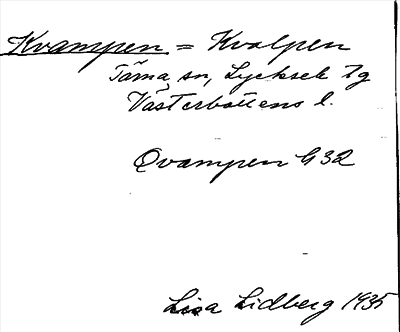 Kvampen = Kvalpen
Tärna sn, Lycksele tg
Västerbottens l.
Qvampen G 32
Lisa Lidberg 1935